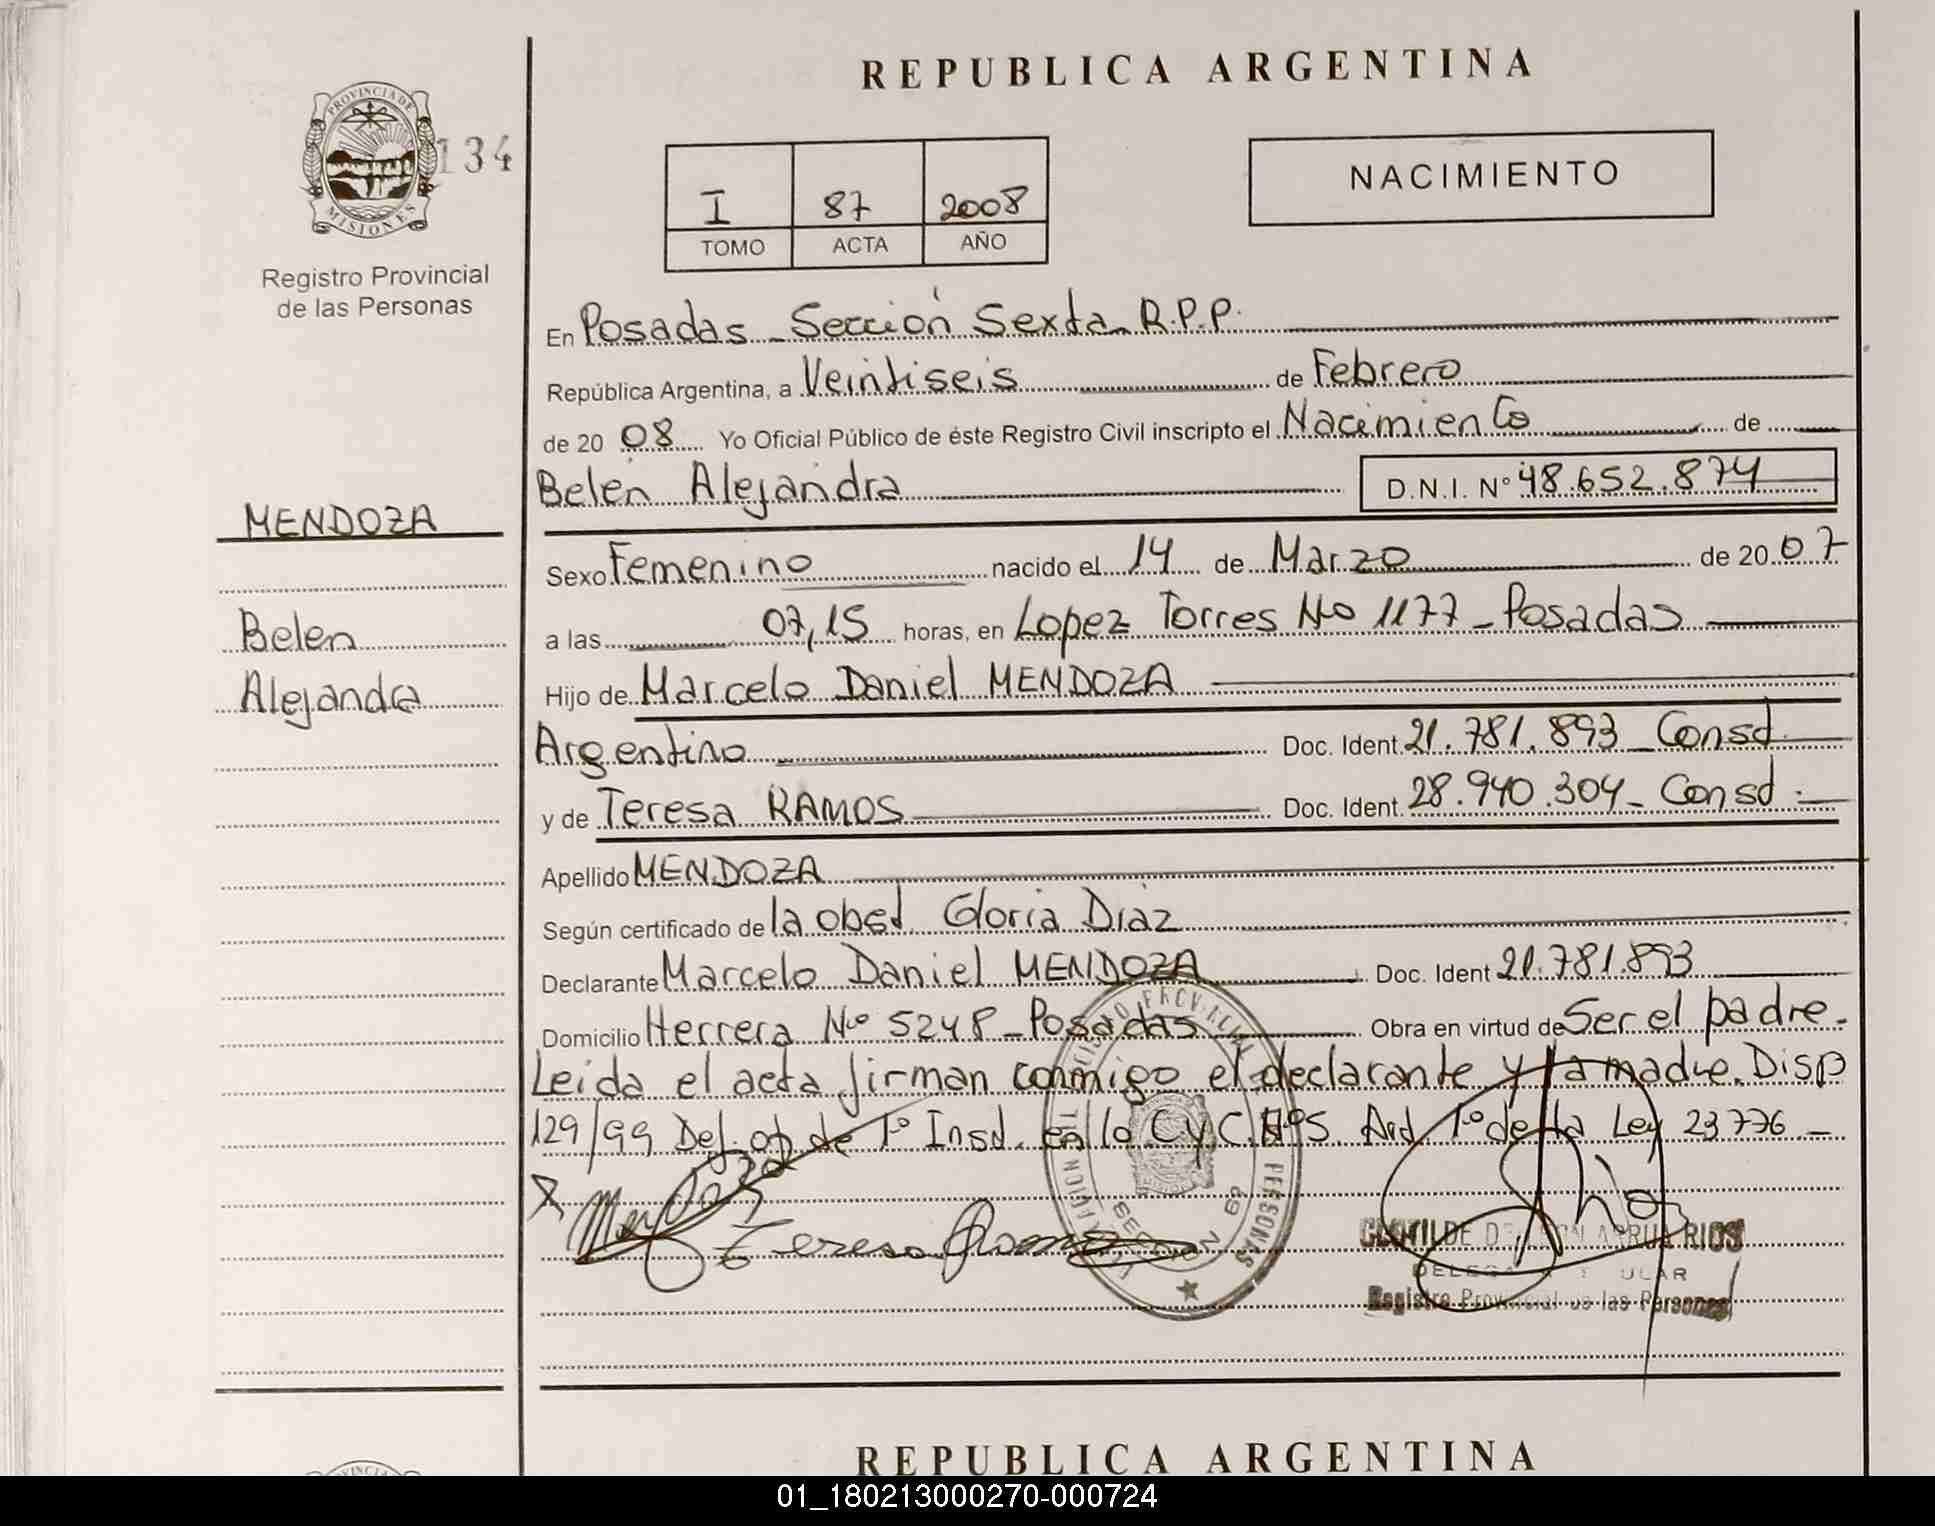 REPUBLICA ARGENTINA
PROVINCIA DE
MISIONES
134
Registro Provincial
de las Personas
I 87 2008
TOMO ACTA AÑO
NACIMIENTO
En Posadas - Sección Sexta R.P.P.
República Argentina, a Veintiseis de Febrero
de 20 08 Yo Oficial Público de éste Registro Civil inscripto el Nacimiento de
Belén Alejandra D.N.I. Nº 48.652.874
MENDOZA
Sexo Femenino nacido el 14 de Marzo de 20 07
Belen
a las 07,15 horas, en Lopez Torres No 1177 - Posadas
Alejandra
Hijo de Marcelo Daniel MENDOZA
Argentino Doc. Ident. 21.781.893 - Const.
y de Teresa RAMOS Doc. Ident. 28.940.304 - Const.
Apellido MENDOZA
Según certificado de la obst. Gloria Diaz
Declarante Marcelo Daniel MENDOZA Doc. Ident 21.781.893
Domicilio Herrera Nº 5248 - Posadas Obra en virtud de Ser el padre.
Leida el acta firman conmigo el declarante y la madre. Disp
129/99 Def. of. de 1º Inst. en lo C y C. Nº5. Art 1º de la Ley 23776 -
Teresa Ramos
CLOTILDE ARRUA RIOS
Registro Provincial de las Personas
REPUBLICA ARGENTINA
01_180213000270-000724